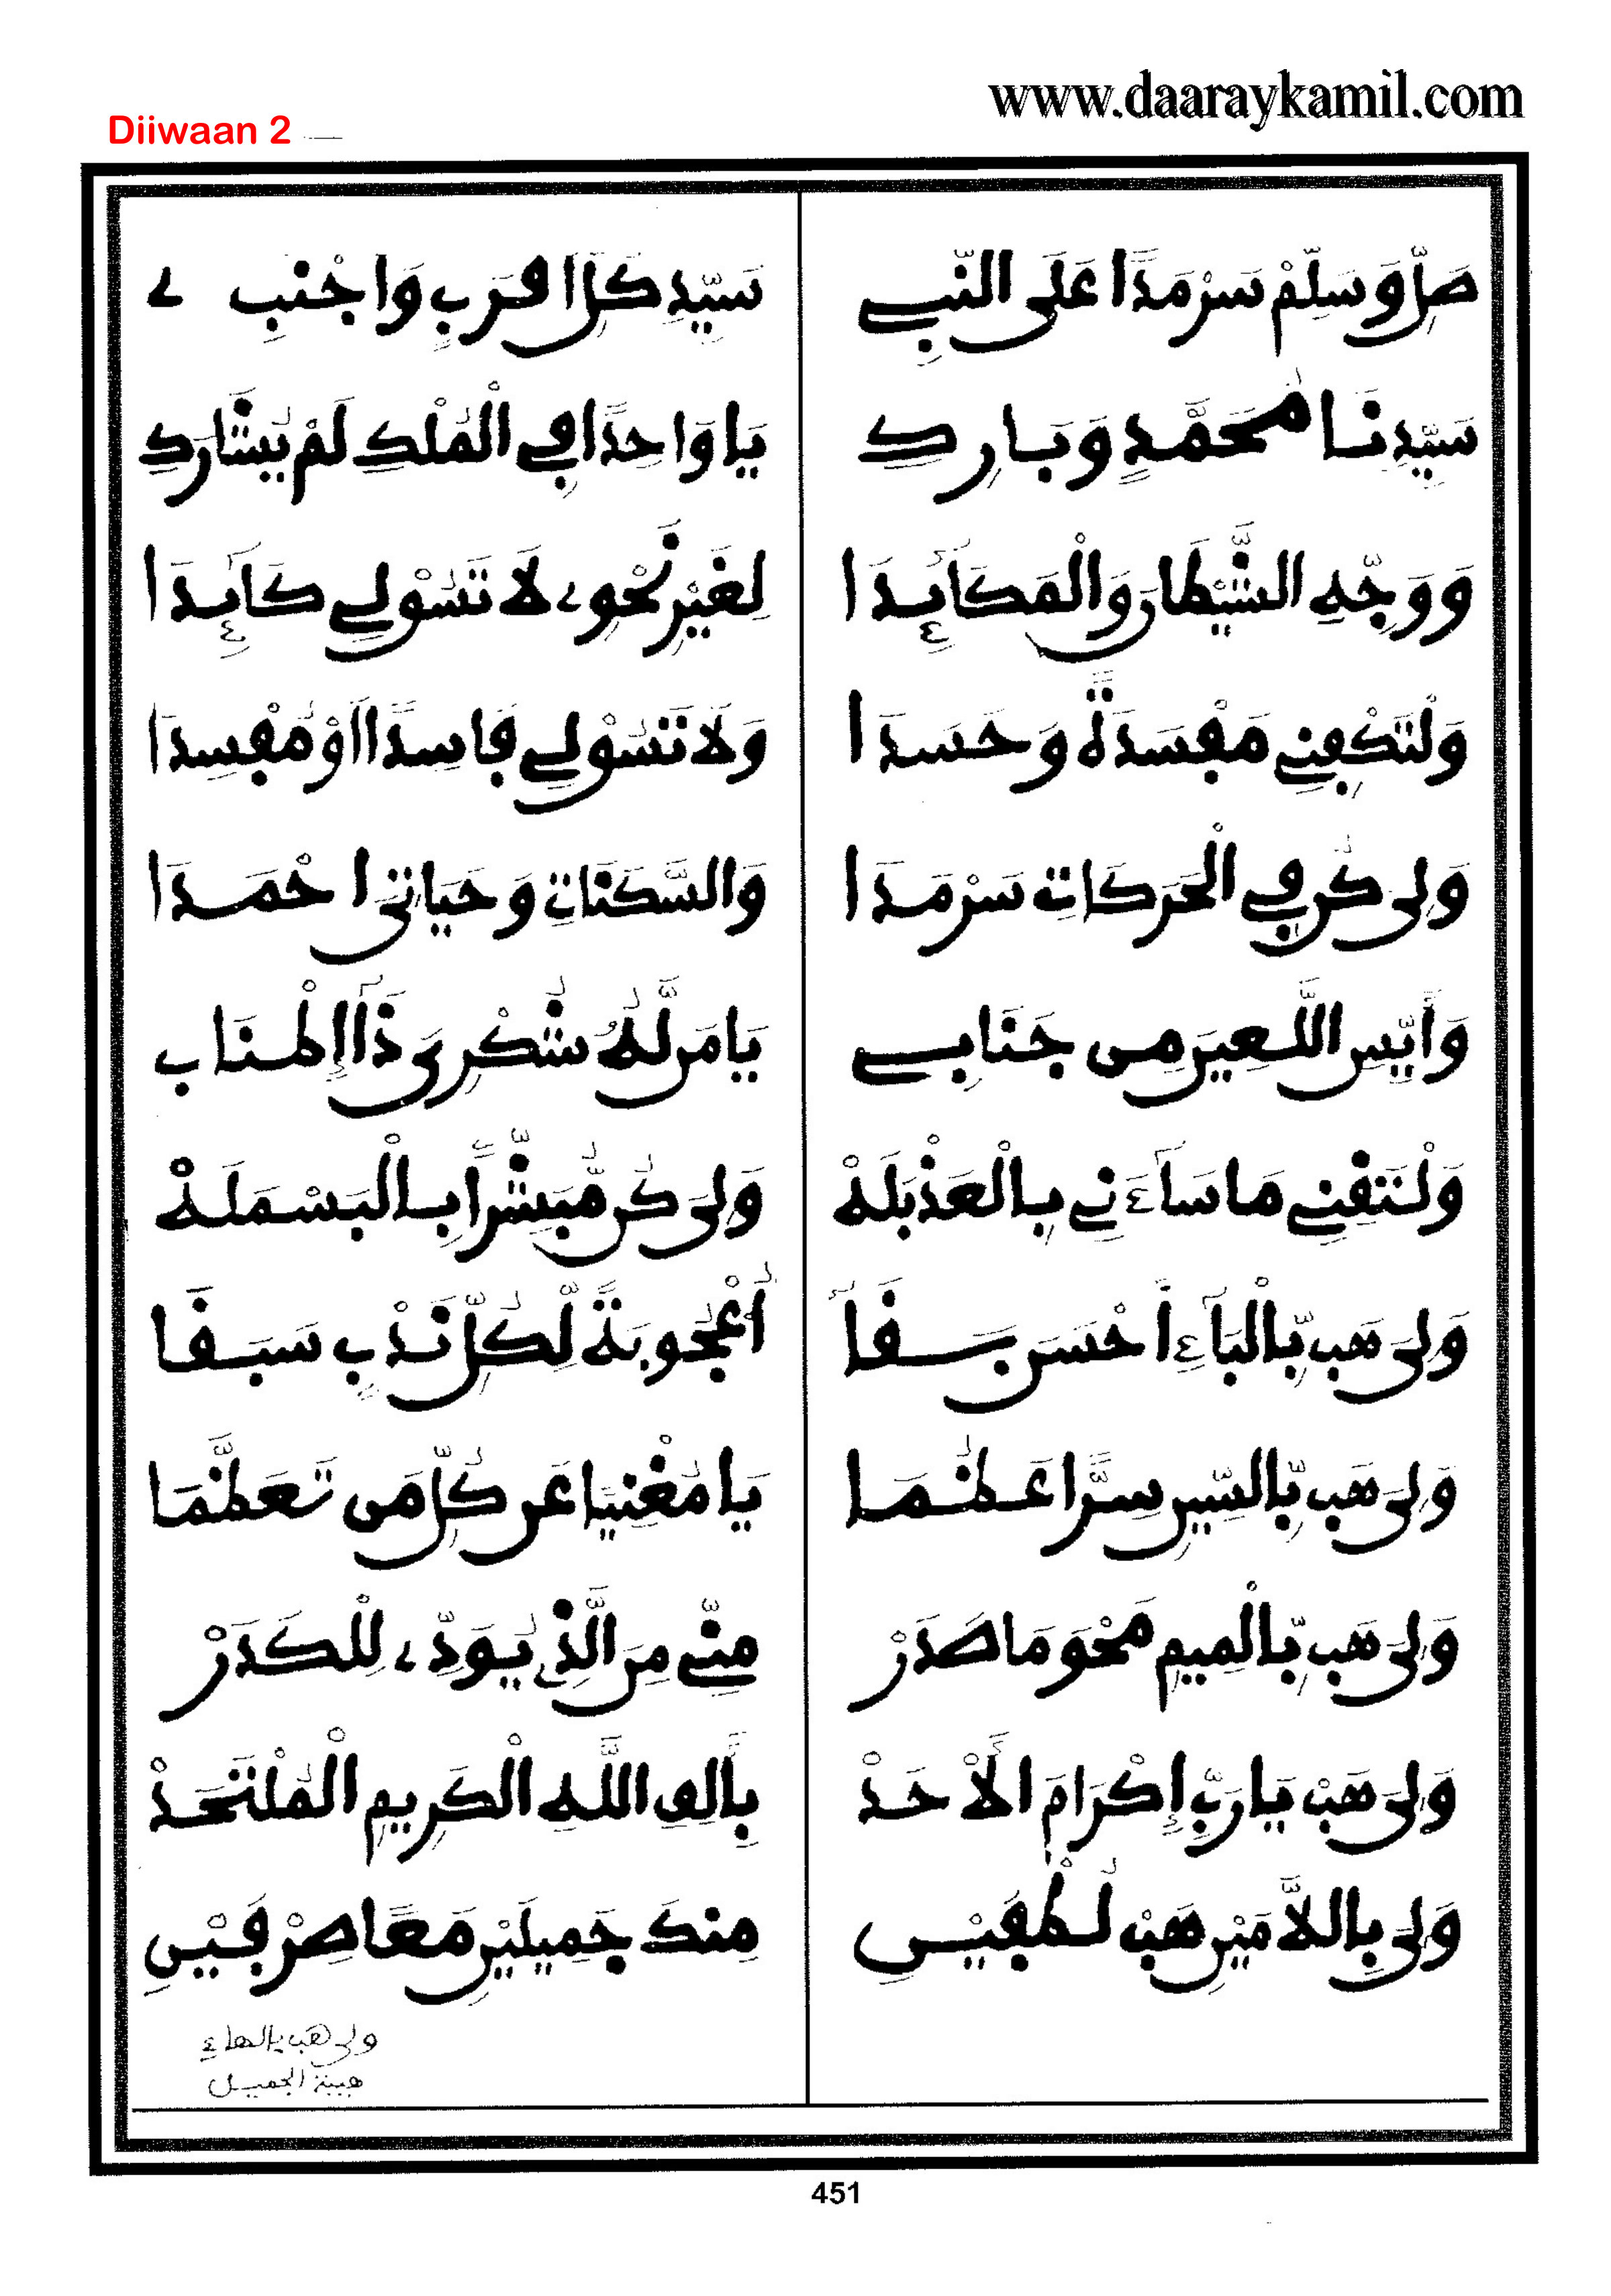 www.daaraykamil.com
Diiwaan 2
صَلِّ وَسَلِّمْ سَرْمَدًا عَلَى النَّبِي سَيِّدِ كُلِّ أَقْرَبٍ وَأَجْنَبِ ے
سَيِّدِنَا مُحَمَّدٍ وَبَارِكِ يَا وَاحِدًا فِي الْمُلْكِ لَمْ يُشَارَكِ
وَوَجِّهِ الشَّيْطَانَ وَالْمَكَآئِدَا لِغَيْرِ نَحْوِے لَا تَسُوْ لِي كَآئِدَا
وَلْتَكْفِنِي مَفْسَدَةً وَحَسَدَا وَلَا تَسُوْ لِي فَاسِدًا أَوْ مُفْسِدَا
وَلِي كُنْ فِي الْحَرَكَاتِ سَرْمَدَا وَالسَّكَنَاتِ وَحَيَاتِي احْمَدَا
وَأَيِّسِ اللَّعِينَ مِن جَنَابِي يَا مَن لَّهُ شُكْرِي ذَا الْمَنَابِ
وَلْتَنْفِنِي مَا سَآءَنِي بِالْعَذْبَلَهْ وَلِيَ كُن مُّبَشِّرًا بِالْبَسْمَلَهْ
وَلِيَ هَب بِّالْبَآءِ أَحْسَنَ بَقَا أُعْجُوبَةً لِّكُلِّ نَدْبٍ سَبَقَا
وَلِيَ هَب بِّالسِّينِ سِرًّا عَظُمَا يَا مُغْنِيًا عَن كُلِّ مَن تَعَظَّمَا
وَلِيَ هَب بِّالْمِيمِ مَحْوَ مَا صَدَرْ مِنِّي مِنَ الَّذِي يُوَدِّے لِلْكَدَرْ
وَلِيَ هَبْ يَا رَبِّ إِكْرَامَ الْأَحَدْ بِأَلِفِ اللَّهِ الْكَرِيمِ الْمُلْتَحَدْ
وَلِيَ بِاللَّامَيْنِ هَبْ لُطْفَيْنِ مِنكَ جَمِيلَيْنِ مَعًا صِرْفَيْنِ
ولي هب بالهاء
هيبة الجميل
451